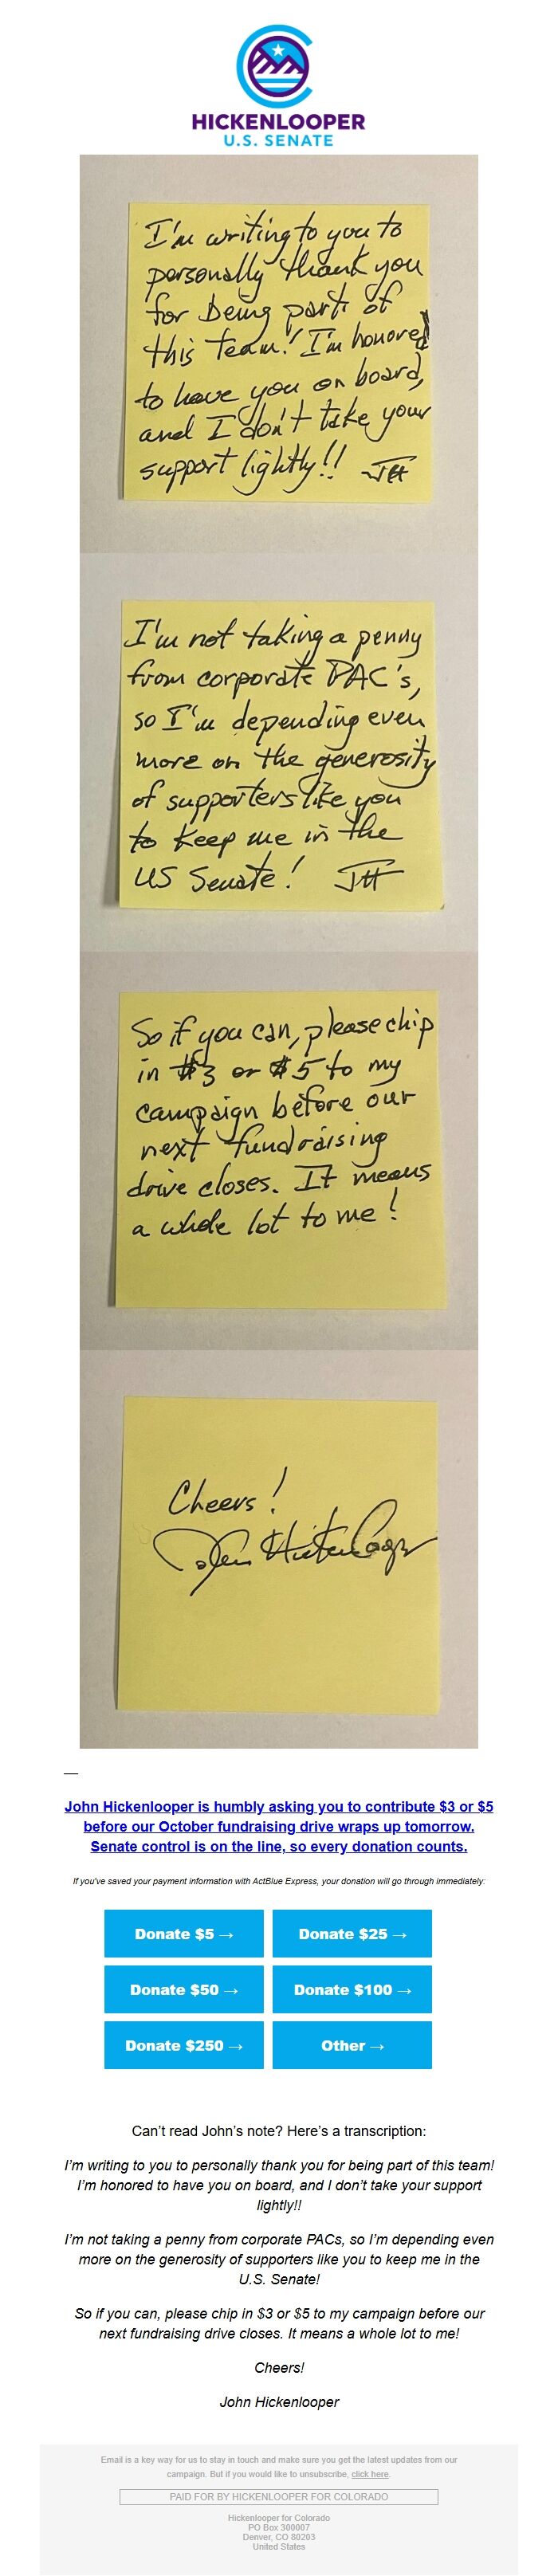 HICKENLOOPER
U.S. SENATE
I'm writing to you to
personally thank you
for being part of
this team! I'm honored
to have you on board,
and I don't take your
support lightly!! JH
I'm not taking a penny
from corporate PAC's,
so I'm depending even
more on the generosity
of supporters like you
to keep me in the
US Senate! JH
So if you can, please chip
in $3 or $5 to my
campaign before our
next fundraising
drive closes. It means
a whole lot to me!
Cheers!
John Hickenlooper
—
John Hickenlooper is humbly asking you to contribute $3 or $5
before our October fundraising drive wraps up tomorrow.
Senate control is on the line, so every donation counts.
If you've saved your payment information with ActBlue Express, your donation will go through immediately:
Donate $5 → Donate $25 →
Donate $50 → Donate $100 →
Donate $250 → Other →
Can't read John's note? Here's a transcription:
I'm writing to you to personally thank you for being part of this team!
I'm honored to have you on board, and I don't take your support
lightly!!
I'm not taking a penny from corporate PACs, so I'm depending even
more on the generosity of supporters like you to keep me in the
U.S. Senate!
So if you can, please chip in $3 or $5 to my campaign before our
next fundraising drive closes. It means a whole lot to me!
Cheers!
John Hickenlooper
Email is a key way for us to stay in touch and make sure you get the latest updates from our
campaign. But if you would like to unsubscribe, click here.
PAID FOR BY HICKENLOOPER FOR COLORADO
Hickenlooper for Colorado
PO Box 300007
Denver, CO 80203
United States